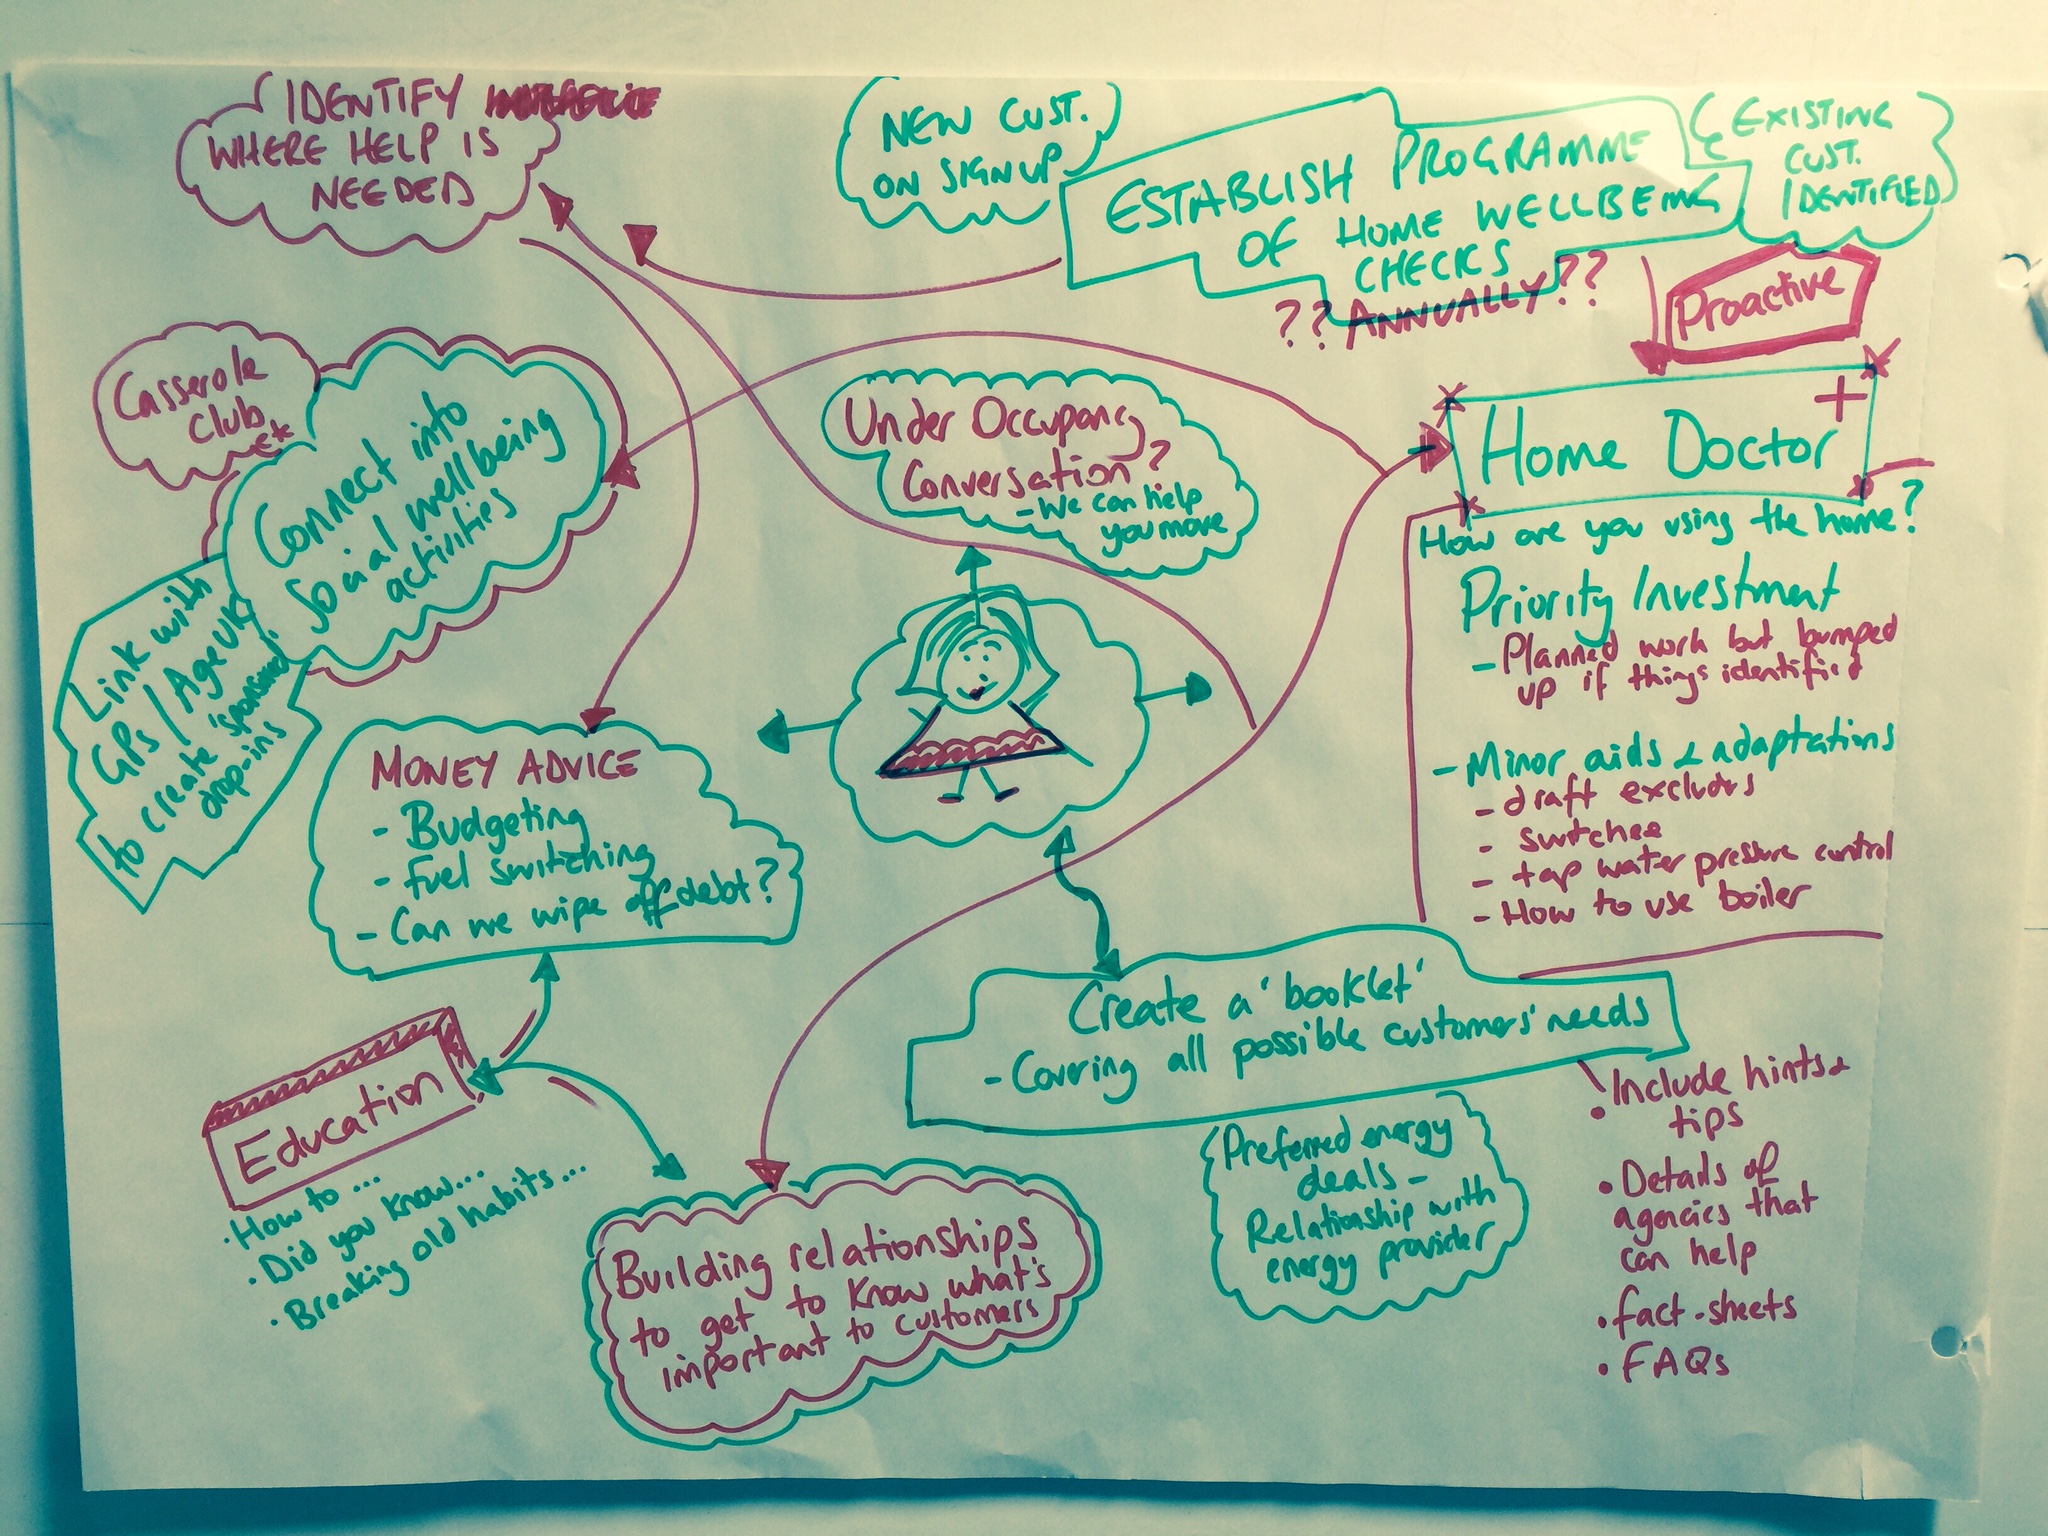 IDENTIFY
WHERE HELP IS
NEEDED
NEW CUST.
ON SIGNUP
ESTABLISH PROGRAMME
OF HOME WELLBEING
CHECKS
?? ANNUALLY ??
EXISTING
CUST.
IDENTIFIED
Proactive
Casserole
Club
etc
Connect into
Social wellbeing
activities
Link with
GPs / Age UK
to create 'sponsored'
drop-ins
Under Occupancy
Conversation?
- We can help
you move
Home Doctor
How are you using the home?
Priority Investment
- Planned work but bumped
up if things identified
- Minor aids & adaptations
- draft excluders
- switchee
- tap water pressure control
- How to use boiler
MONEY ADVICE
- Budgeting
- Fuel switching
- Can we wipe off debt?
Create a 'booklet'
- Covering all possible customers' needs
Education
• How to ...
• Did you know...
• Breaking old habits...
Preferred energy
deals -
Relationship with
energy provider
• Include hints &
tips
• Details of
agencies that
can help
• fact-sheets
• FAQs
Building relationships
to get to know what's
important to customers